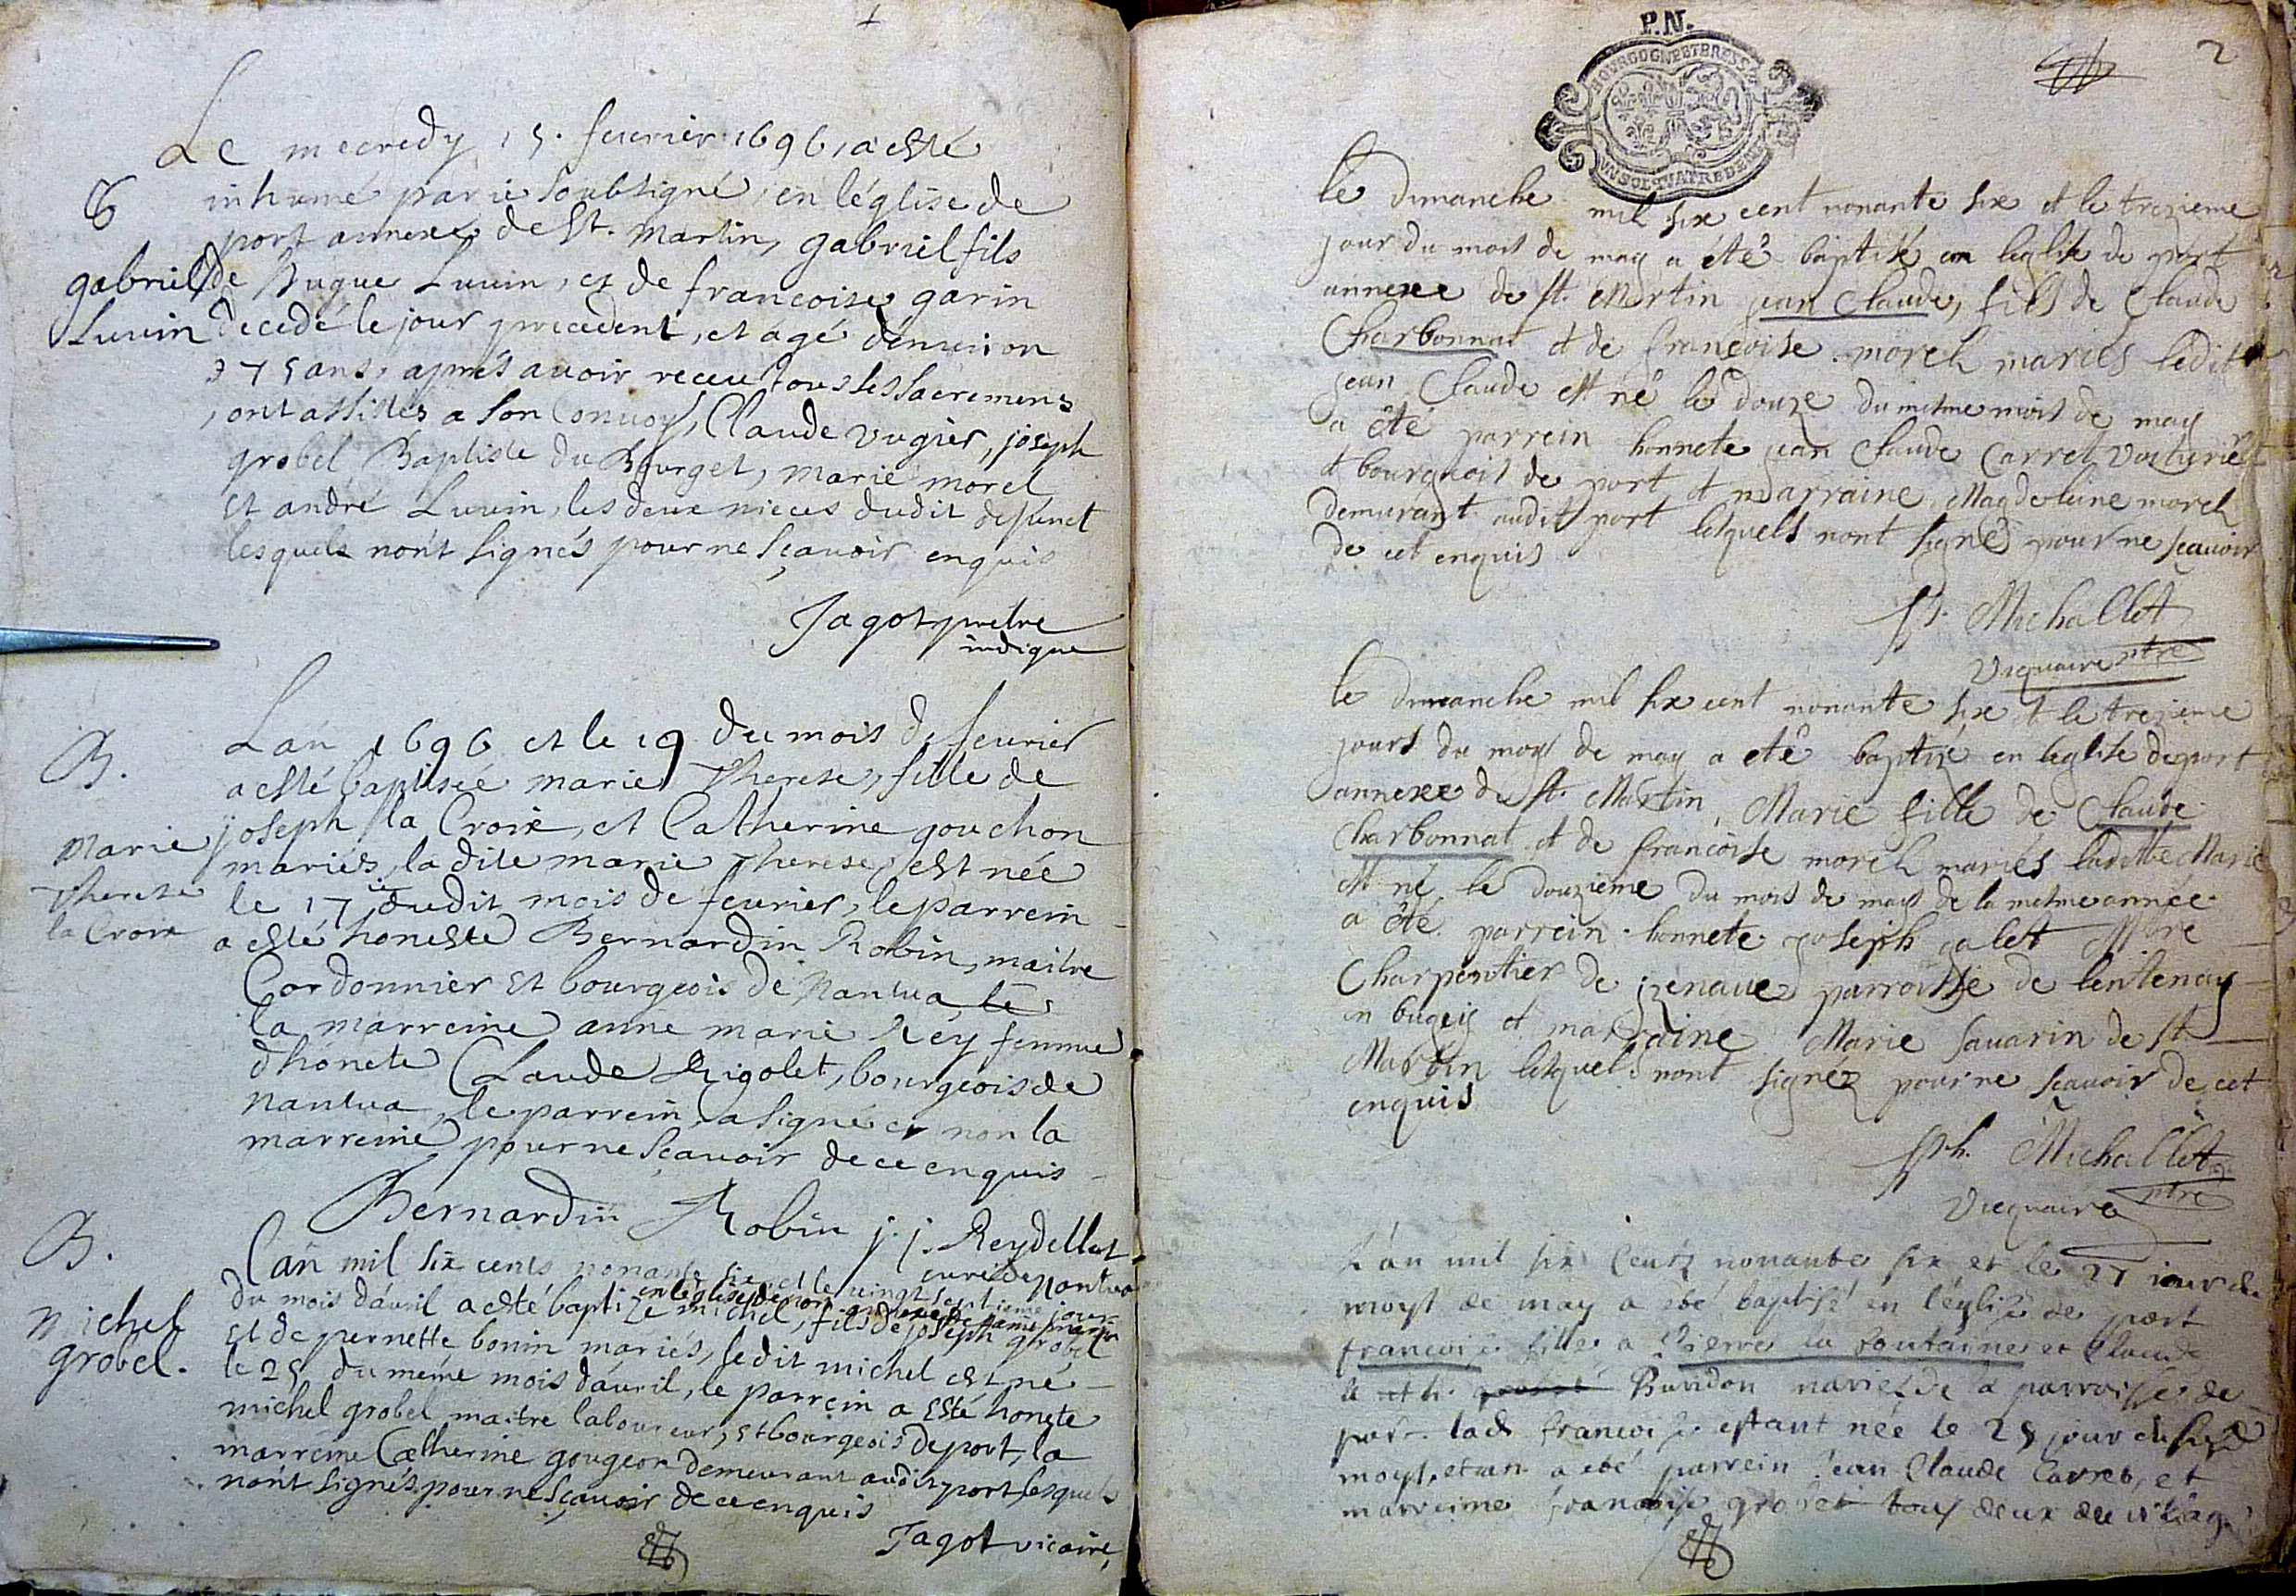 1
Le mecredy 15. feurier 1696, a esté
inhumé par ie soubsigné, en léglise de
port annexe de St. Martin, gabriel fils
de hugue Luuin, et de francoise garin
decedé le jour precedent, et agé dénuiron
75 ans, aprés auoir receu tous les sacremens
, ont assistés a son Conuoy, Claude vugier, joseph
grobel Baptiste du Bourget, marie morel
Et andré Luuin, les deux nieces dudit defunct
lesquels nont signés pour ne sçauoir enquis
Jagot pretre
indigne
gabriel
Luuin
Lan 1696 et le 19 du mois de feurier
a esté baptiseé marie Therese, fille de
joseph la Croix, et Catherine gouchon
mariés, la dite marie Therese, est née
le 17 dudit mois de feurier, le parrein
a esté honeste Bernardin Robin, maitre
Cordonnier Et bourgeois de Nantua
la marreine anne marie Rey femme
dhónete Claude Rigolet, bourgeois de
nantua, le parrein, a signé et non la
marreine pour ne sçauoir de ce enquis
Bernardin Robin j. j. Reydellet
curé de Nantua
B.
Marie
Therese
la Croix
Lan mil six cents nonante six et le vingt septieme jour
en léglise de port annexe de saint martin
du mois dáuril a esté baptizé michel, fils de joseph grobel
Et de pernette bonin mariés, ledit michel est né
le 25 du méme mois dáuril, le parrein a Esté honete
michel grobel maitre laboureur, Et bourgeois de port, la
marreine Catherine gougeon demeurant audit port lesquels
nont signés pour ne sçauoir de ce enquis
Jagot vicaire,
B.
Michel
grobel.
P.N.
BOURGOGNE ET BRESSE
UN SOL QUATRE DE
2
le dimanche mil six cent nonante six et le trezieme
jour du mois de may a été baptisé en leglise de port
annexe de st. Martin jean Claude, fils de Claude
Charbonnat et de françoise morel mariés ledit
jean Claude est né le douze du mesme mois de may
a été parrein honnete jean Claude Carret voiturier
et bourgeois de port et marraine Magdeleine morel
demurant audit port lesquels nont signé pour ne sçauoir
de cet enquis
Michallet
Viquaire ptre
le dimanche mil six cent nonante six et le trezieme
jours du moys de may a eté baptizé en leglise de port
annexe de st. Martin, Marie fille de Claude
Charbonnat et de francoise morel mariés laditte Marie
est né le douzieme du mois de mays de la mesme année
a été parrein honnete joseph galet Mtre
Charpentier de izenaue parroisse de lentenay
in bugeis et marraine Marie Sauarin de st.
Martin lesquels nont signez pour ne sçauoir de cet
enquis
ph. Michallet
Vicquaire ptre
Lan mil six Centz nonante six et le 27 iour de
moys de may a été baptisé en léglise de port
francoise fille a Pierre la fontaine et Claude
Buridon mariés de la parroisse de
port lad. francoise estant née le 25 jour du susd
moys, et an a été parrein Jean Claude Carret, et
marreine francoise grobet tous deux du vilage